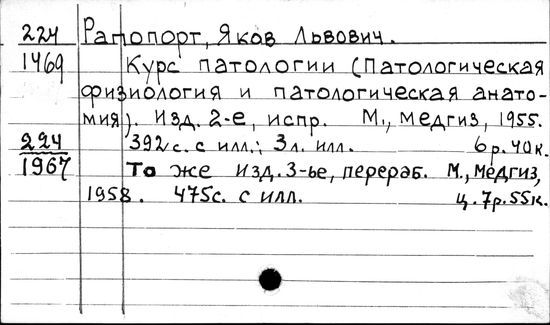 224 Рапопорт, Яков Львович.
1469 Курс патологии (Патологическая
физиология и патологическая анато-
мия). Изд. 2-е, испр. М., Медгиз, 1955.
224 392 с. с илл.; 3 л. илл. 6 р. 40 к.
1967 То же изд. 3-ье, перераб. М., Медгиз,
1958. 475 с. с илл. ц. 7 р. 55 к.